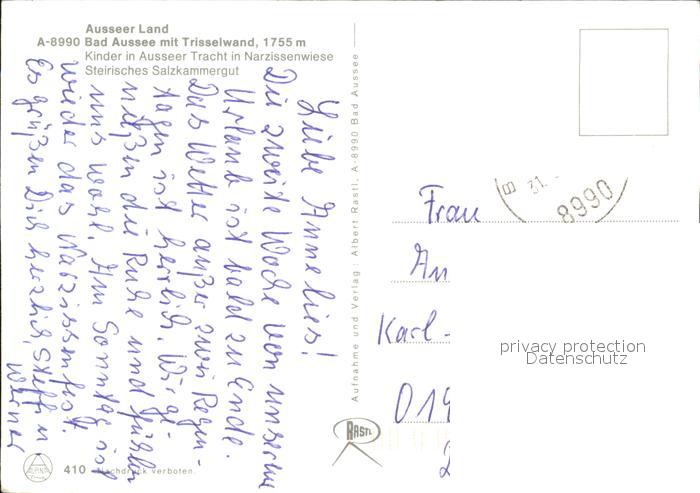 Ausseer Land
A-8990 Bad Aussee mit Trisselwand, 1755 m
Kinder in Ausseer Tracht in Narzissenwiese
Steirisches Salzkammergut
Liebe Annelies!
Die zweite Woche von unserem
Urlaub ist bald zu Ende.
Das Wetter außer zwei Regen-
tagen ist herrlich. Wir ge-
nießen die Ruhe und fühlen
uns wohl. Am Sonntag ist
wieder das Narzissenfest.
Es grüßen Dich herzlich, Steffi u
Werner
410 Nachdruck verboten.
ALPINA
Aufnahme und Verlag: Albert Rastl, A-8990 Bad Aussee
RASTL
B 31.-
8990
Frau
An
Karl-
019
privacy protection
Datenschutz